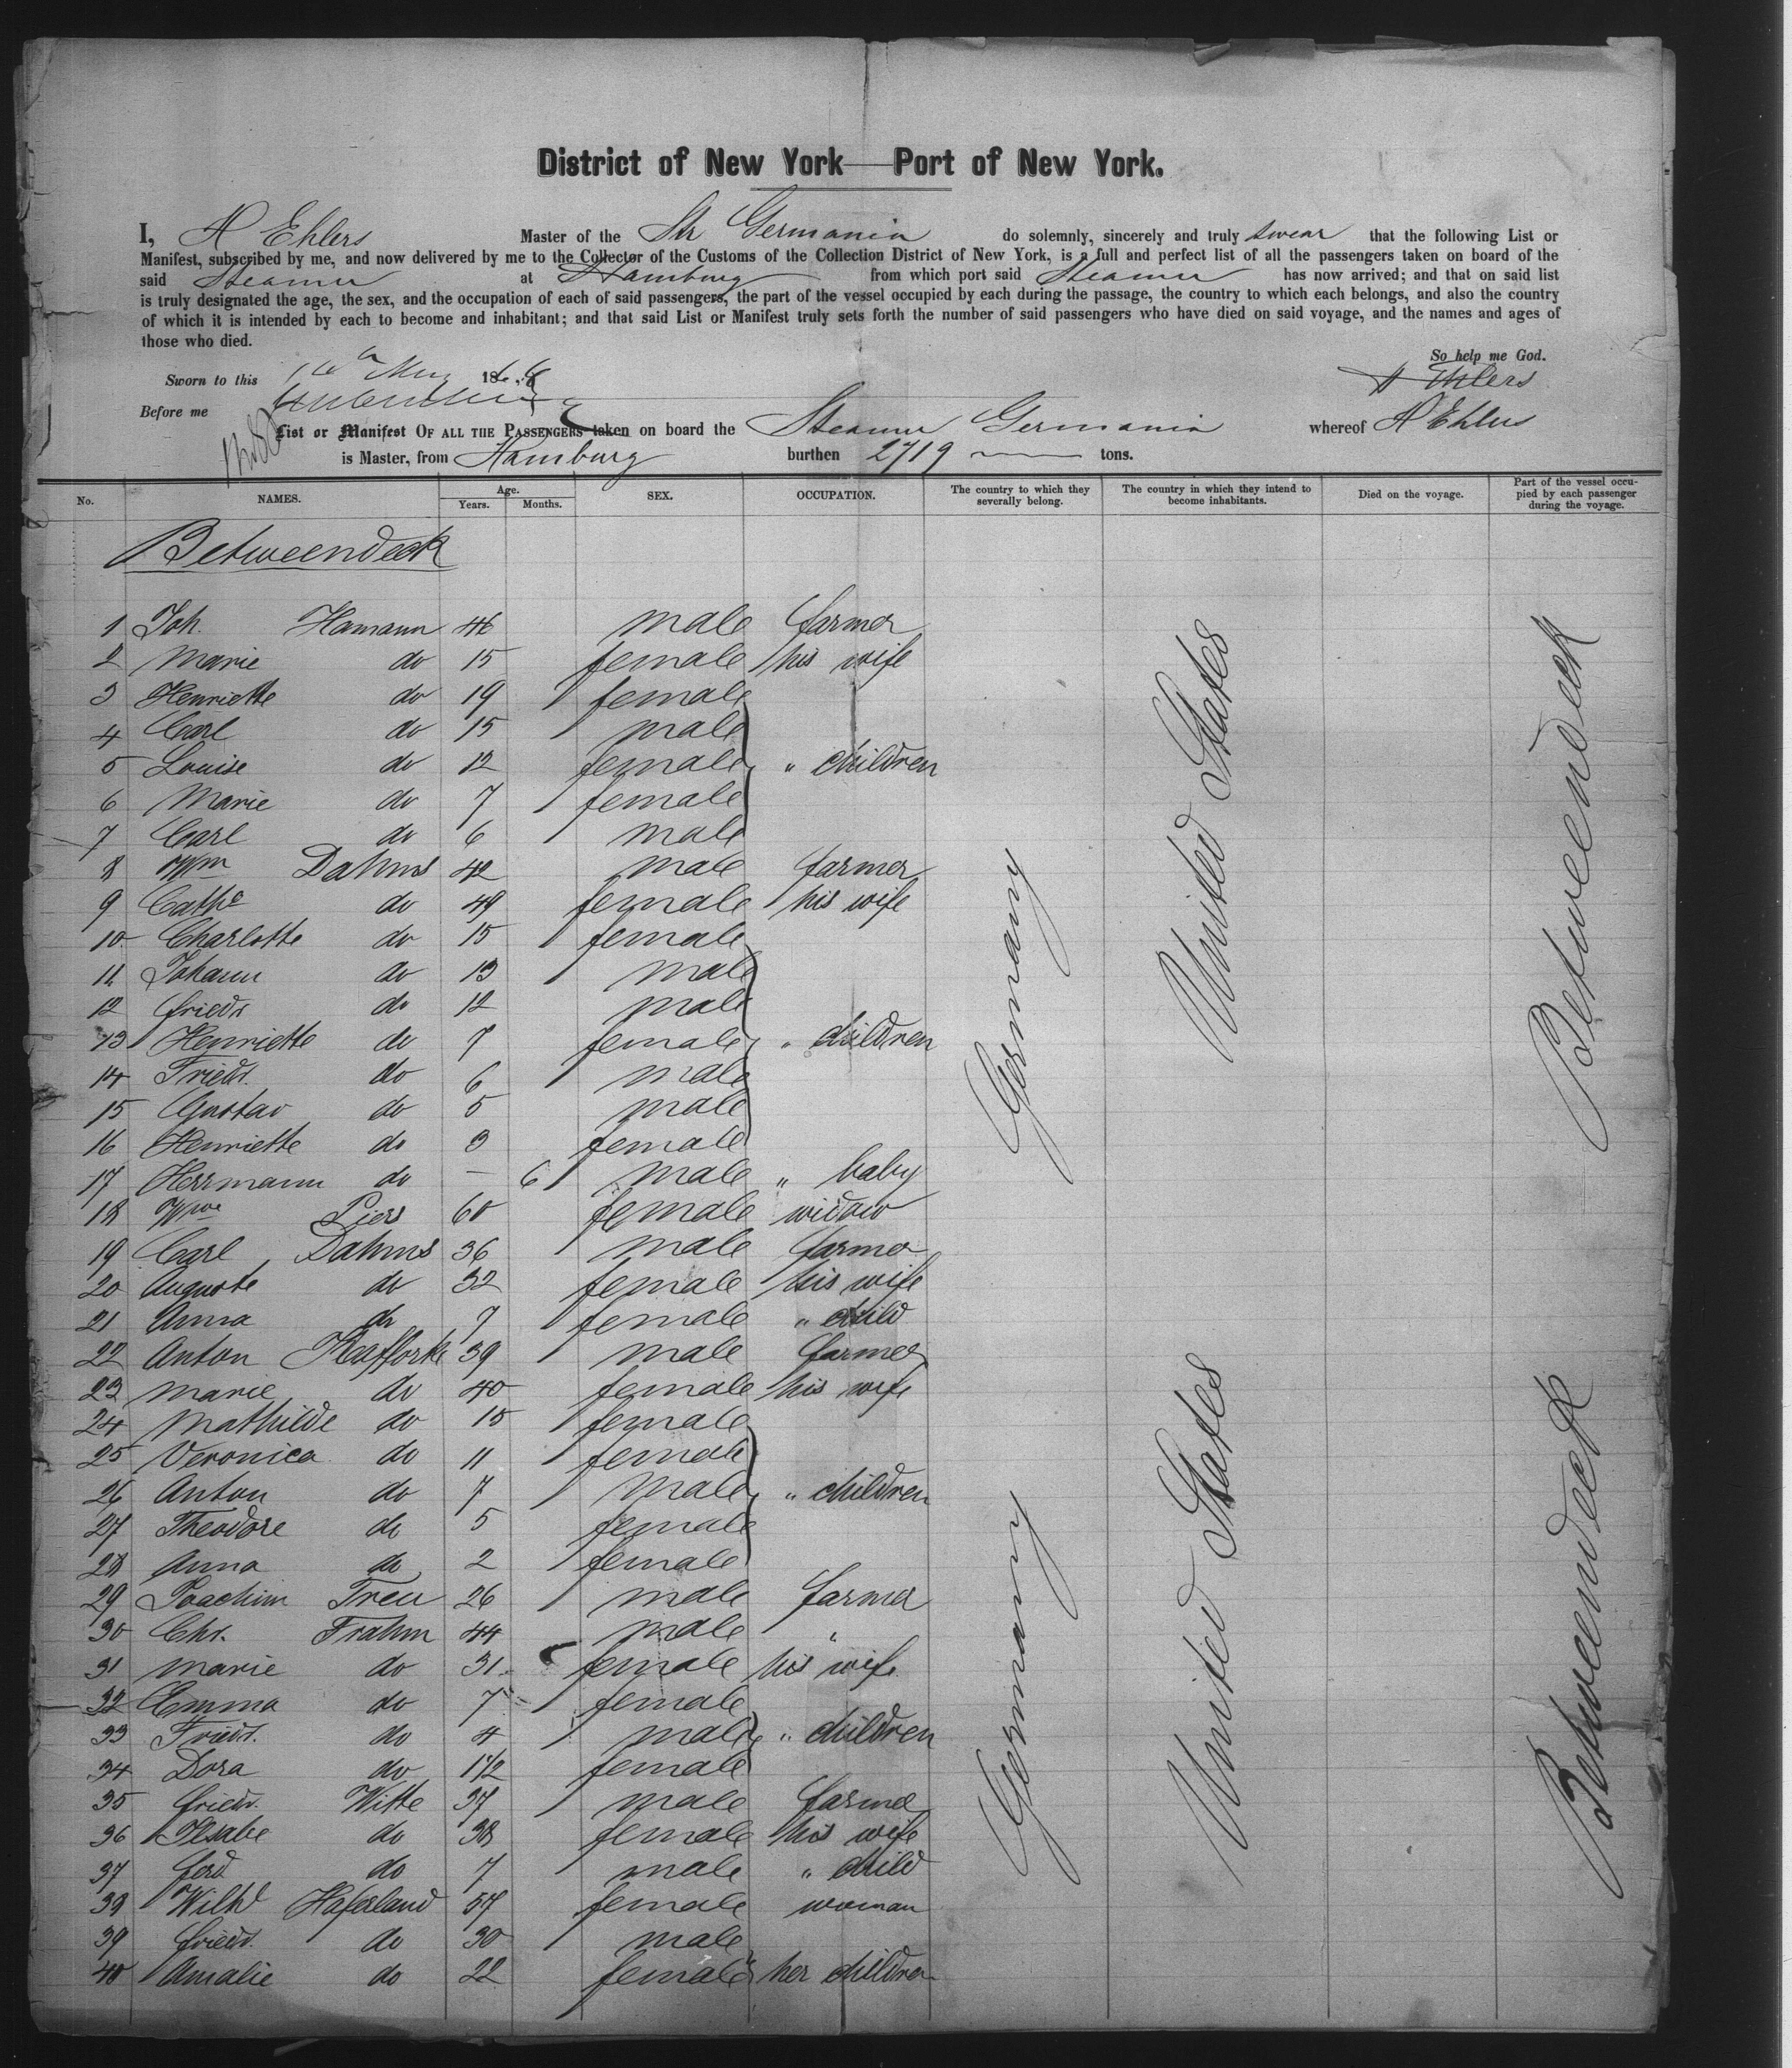 District of New York—Port of New York.
I, H Ehlers Master of the Str Germania do solemnly, sincerely and truly swear that the following List or
Manifest, subscribed by me, and now delivered by me to the Collector of the Customs of the Collection District of New York, is a full and perfect list of all the passengers taken on board of the
said Steamer at Hamburg from which port said Steamer has now arrived; and that on said list
is truly designated the age, the sex, and the occupation of each of said passengers, the part of the vessel occupied by each during the passage, the country to which each belongs, and also the country
of which it is intended by each to become and inhabitant; and that said List or Manifest truly sets forth the number of said passengers who have died on said voyage, and the names and ages of
those who died.
So help me God.
Sworn to this 186
H Ehlers
Before me
List or Manifest OF ALL THE PASSENGERS taken on board the Steamer Germania whereof H Ehlers
is Master, from Hamburg burthen 2719 tons.
No. NAMES. Age. Years. Months. SEX. OCCUPATION. The country to which they severally belong. The country in which they intend to become inhabitants. Died on the voyage. Part of the vessel occupied by each passenger during the voyage.
Betweendeck
1 Joh. Hamann 46 male farmer
2 Marie do 15 female his wife
3 Henriette do 19 female
4 Carl do 15 male
5 Louise do 12 female " children
6 Marie do 7 female
7 Carl do 6 male
8 Wm Dahms 42 male farmer
9 Cathe do 49 female his wife
10 Charlotte do 15 female
11 Johann do 13 male
12 Friedr do 12 male
13 Henriette do 7 female " children
14 Friedr. do 6 male
15 Gustav do 5 male
16 Henriette do 3 female
17 Herrmann do — 6 male " baby
18 Wwe Piers 60 female widow
19 Carl Dahms 36 male farmer
20 Auguste do 32 female his wife
21 Anna do 7 female " child
22 Anton 39 male farmer
23 Marie do 40 female his wife
24 Mathilde do 15 female
25 Veronica do 11 female
26 Anton do 7 male " children
27 Theodore do 5 female
28 Anna do 2 female
29 Joachim Treu 26 male farmer
30 Chr. Frahm 44 male "
31 Marie do 31 female his wife
32 Emma do 7 female
33 Friedr. do 4 male " children
34 Dora do 1 1/2 female
35 Friedr. Witte 37 male farmer
36 Ilsabe do 38 female his wife
37 Ferd do 7 male " child
38 Wilhe Haferland 57 female woman
39 Friedr. do 30 male
40 Amalie do 22 female her children
Germany
United States
Betweendeck
Germany
United States
Betweendeck